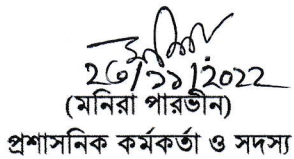 ২৩/১১/২০২২
(মনিরা পারভীন)
প্রশাসনিক কর্মকর্তা ও সদস্য